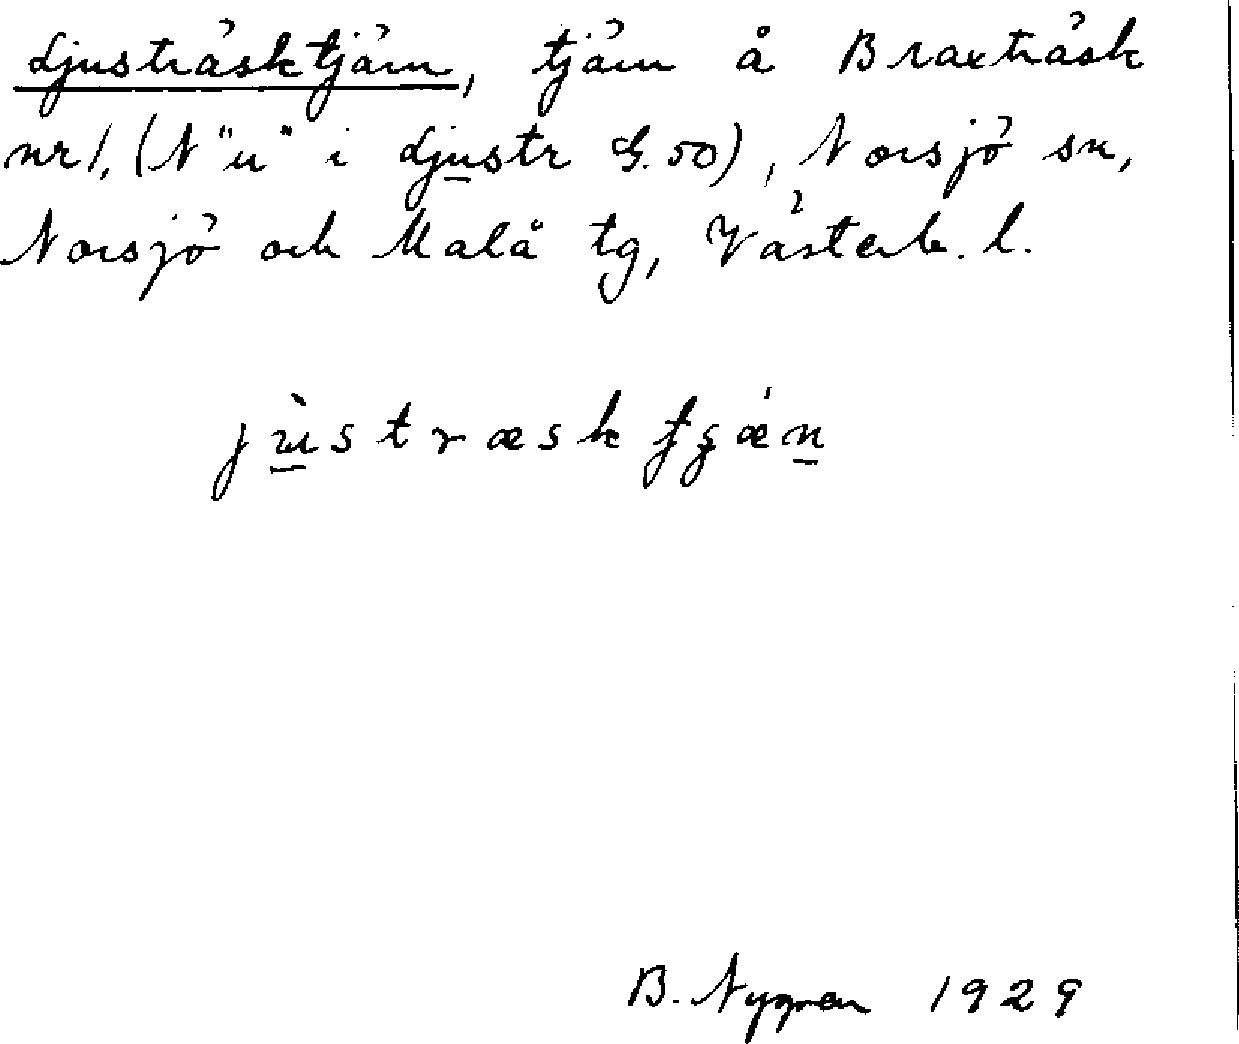 Ljusträsktjärn, tjärn å Braxträsk
nr 1, (N "u" i Ljustr G. 50), Norsjö sn,
Norsjö och Malå tg, Västerb. l.
jùstræsktʃǽn
B. Nygren 1929